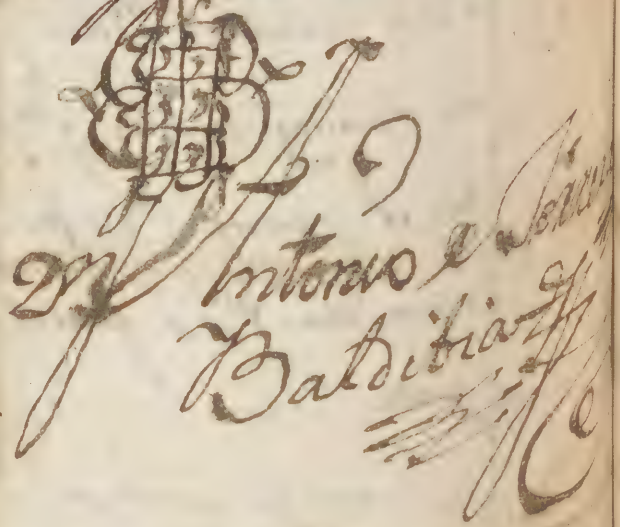 Dn Antonio
Baldibia